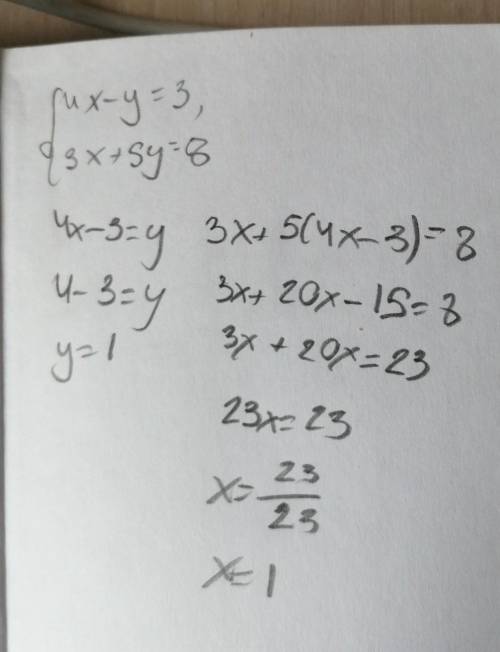 4x-y=3,
3x+5y=8
4x-3=y
4-3=y
y=1
3x+5(4x-3)=8
3x+20x-15=8
3x+20x=23
23x=23
x=23/23
x=1